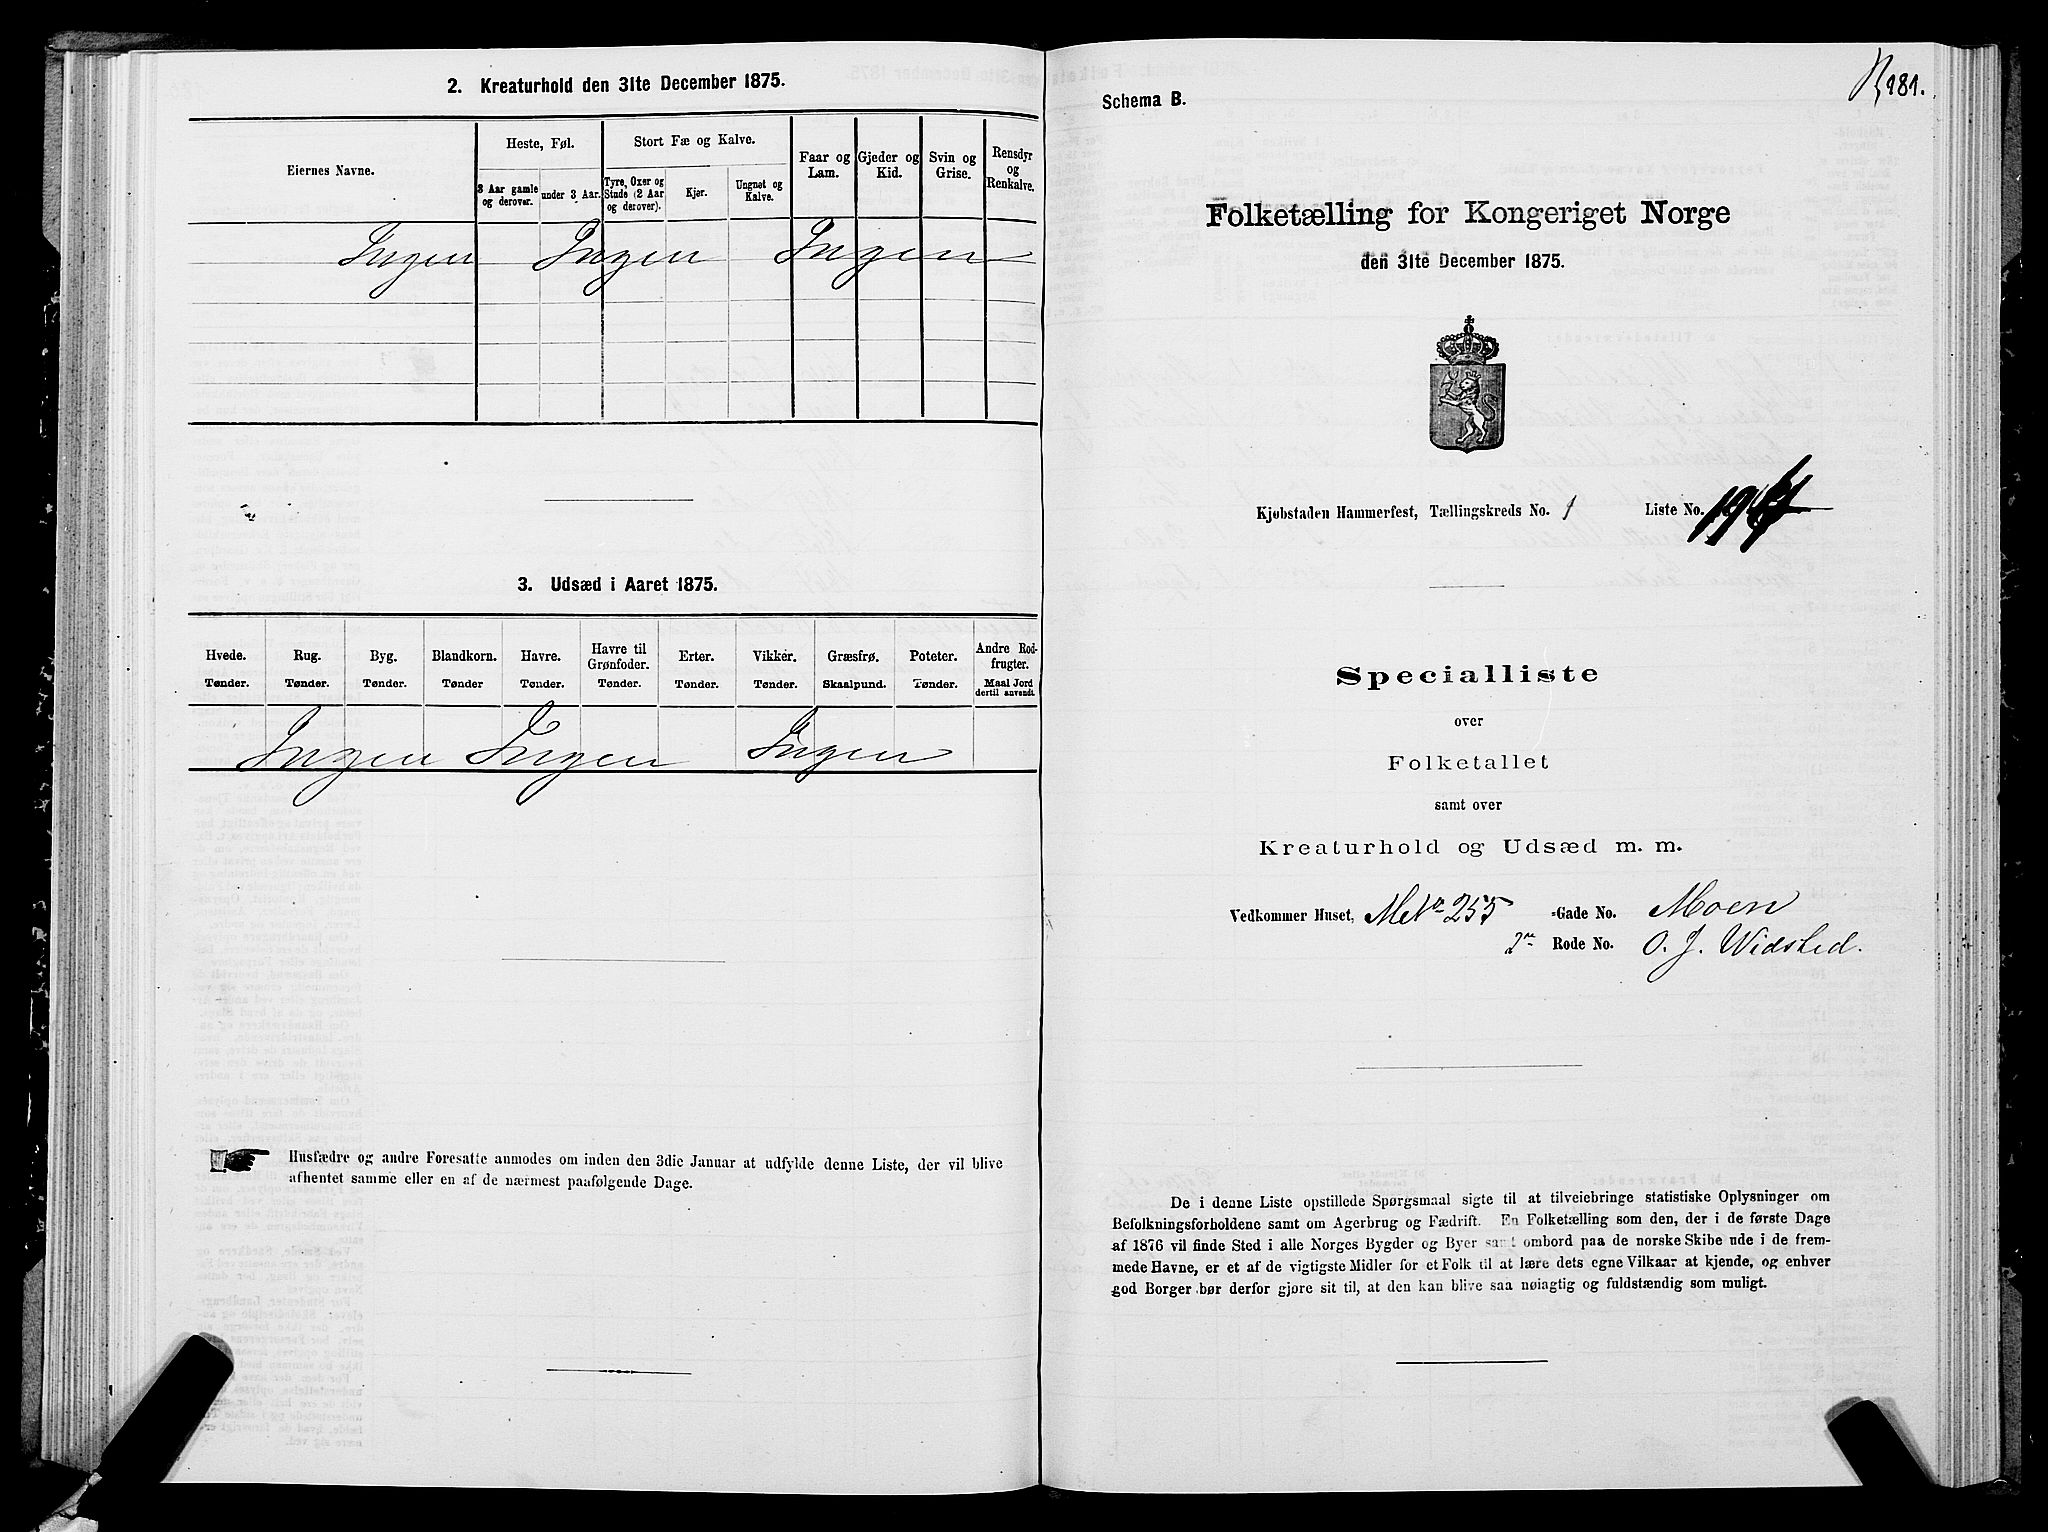 2. Kreaturhold den 31te December 1875.
Eiernes Navne.
Heste, Føl.
Stort Fæ og Kalve.
Faar og Lam.
Gjeder og Kid.
Svin og Grise.
Rensdyr og Renkalve.
3 Aar gamle og derover.
under 3 Aar.
Tyre, Oxer og Stude (2 Aar og derover).
Kjør.
Ungnøt og Kalve.
Ingen Ingen Ingen
3. Udsæd i Aaret 1875.
Hvede. Rug. Byg. Blandkorn. Havre. Havre til Grønfoder. Erter. Vikker. Græsfrø. Poteter. Andre Rodfrugter.
Tønder. Tønder. Tønder. Tønder Tønder. Tønder. Tønder. Tønder. Skaalpund. Tønder. Maal Jord dertil anvendt.
Ingen Ingen Ingen
Husfædre og andre Foresatte anmodes om inden den 3die Januar at udfylde denne Liste, der vil blive
afhentet samme eller en af de nærmest paafølgende Dage.
181.
Schema B.
Folketælling for Kongeriget Norge
den 31te December 1875.
Kjøbstaden Hammerfest, Tællingskreds No. 1 Liste No.
Specialliste
over
Folketallet
samt over
Kreaturhold og Udsæd m. m.
Vedkommer Huset, M No 255 -Gade No. Moen
2den Rode No. O. J. Widsted.
De i denne Liste opstillede Spørgsmaal sigte til at tilveiebringe statistiske Oplysninger om
Befolkningsforholdene samt om Agerbrug og Fædrift. En Folketælling som den, der i de første Dage
af 1876 vil finde Sted i alle Norges Bygder og Byer samt ombord paa de norske Skibe ude i de frem-
mede Havne, er et af de vigtigste Midler for et Folk til at lære dets egne Vilkaar at kjende, og enhver
god Borger bør derfor gjøre sit til, at den kan blive saa nøiagtig og fuldstændig som muligt.